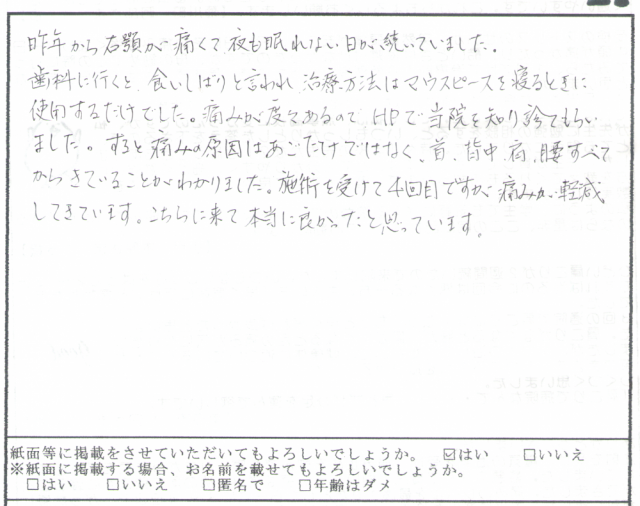 昨年から右顎が痛くて夜も眠れない日が続いていました。
歯科に行くと、食いしばりと言われ治療方法はマウスピースを寝るときに
使用するだけでした。痛みが度々あるので、HPで当院を知り診てもらい
ました。すると痛みの原因はあごだけではなく、首、背中、肩、腰すべて
からきていることがわかりました。施術を受けて4回目ですが痛みが軽減
してきています。こちらに来て本当に良かったと思っています。
紙面等に掲載をさせていただいてもよろしいでしょうか。 ☑はい □いいえ
※紙面に掲載する場合、お名前を載せてもよろしいでしょうか。
□はい □いいえ □匿名で □年齢はダメ